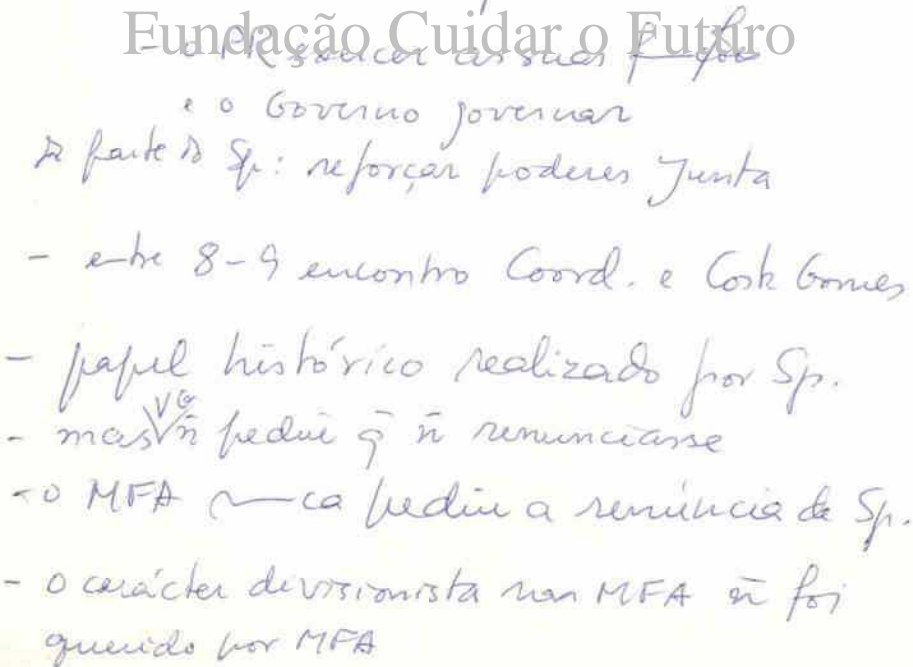 Fundação Cuidar o Futuro
- o PR exercer as suas funções
e o Governo governar
De parte de Sp: reforçar poderes Junta
- entre 8-9 encontro Coord. e Costa Gomes
- papel histórico realizado por Sp.
VG
- mas ñ pediu q̃ ñ renunciasse
- o MFA nunca pediu a renúncia de Sp.
- o carácter divisionista nas MFA ñ foi
querido por MFA